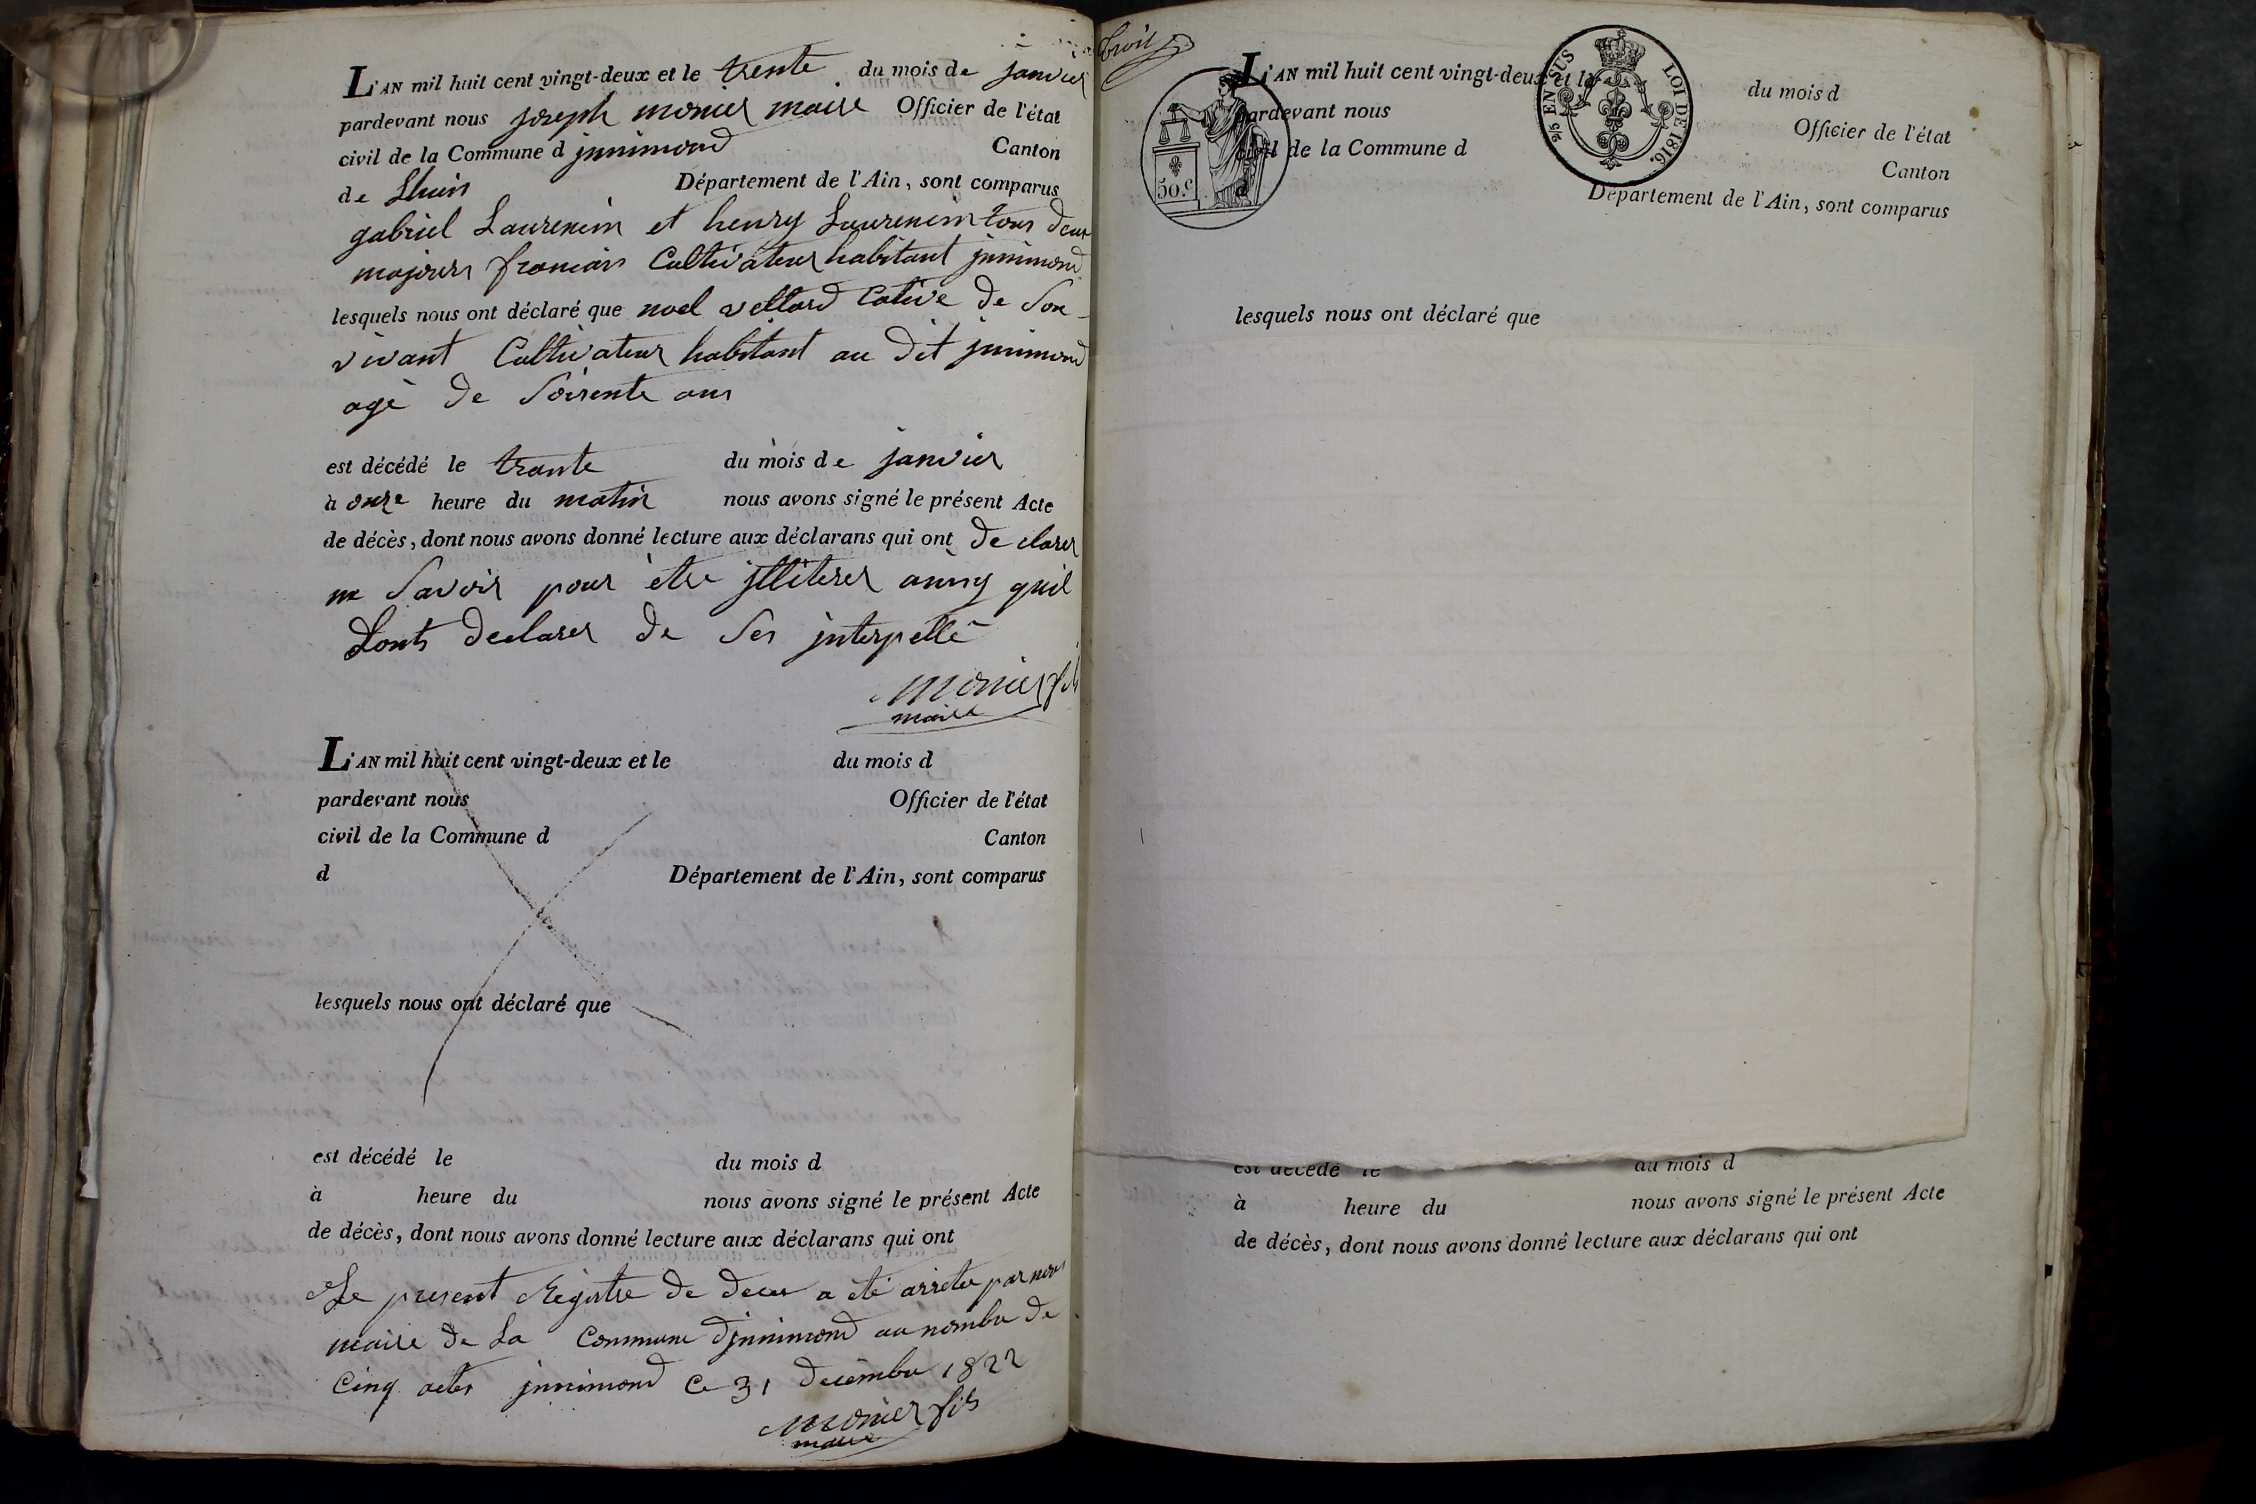 L'AN mil huit cent vingt-deux et le trente du mois de janvier
pardevant nous joseph monier maire Officier de l'état
civil de la Commune d jnnimond Canton
de Lhuis Département de l'Ain, sont comparus
gabriel Laurencin et henry Laurencin tous deux
majeurs francais Cultivateur habitant jnnimond
lesquels nous ont déclaré que noel vettard Cative de Son
vivant Cultivateur habitant au dit jnnimond
agé de Soisente ans
est décédé le trante du mois de janvier
à onze heure du matin nous avons signé le présent Acte
de décès, dont nous avons donné lecture aux déclarans qui ont declarer
ne Savoir pour être jlliterer quil
Lonts declarer de Ses jnterpellé
monier fils
maire
L'AN mil huit cent vingt-deux et le du mois d
pardevant nous Officier de l'état
civil de la Commune d Canton
d Département de l'Ain, sont comparus
lesquels nous ont déclaré que
est décédé le du mois d
à heure du nous avons signé le présent Acte
de décès, dont nous avons donné lecture aux déclarans qui ont
Le present Registre de deces a été arreter par nous
maire de La Commune djnnimond au nombre de
Cinq actes jnnimond Ce 31 decembre 1822
monier fils
maire
L'AN mil huit cent vingt-deux et le du mois d
pardevant nous Officier de l'état
civil de la Commune d Canton
d Département de l'Ain, sont comparus
50.c
25 EN SUS LOI DE 1816.
lesquels nous ont déclaré que
est décédé le du mois d
à heure du nous avons signé le présent Acte
de décès, dont nous avons donné lecture aux déclarans qui ont